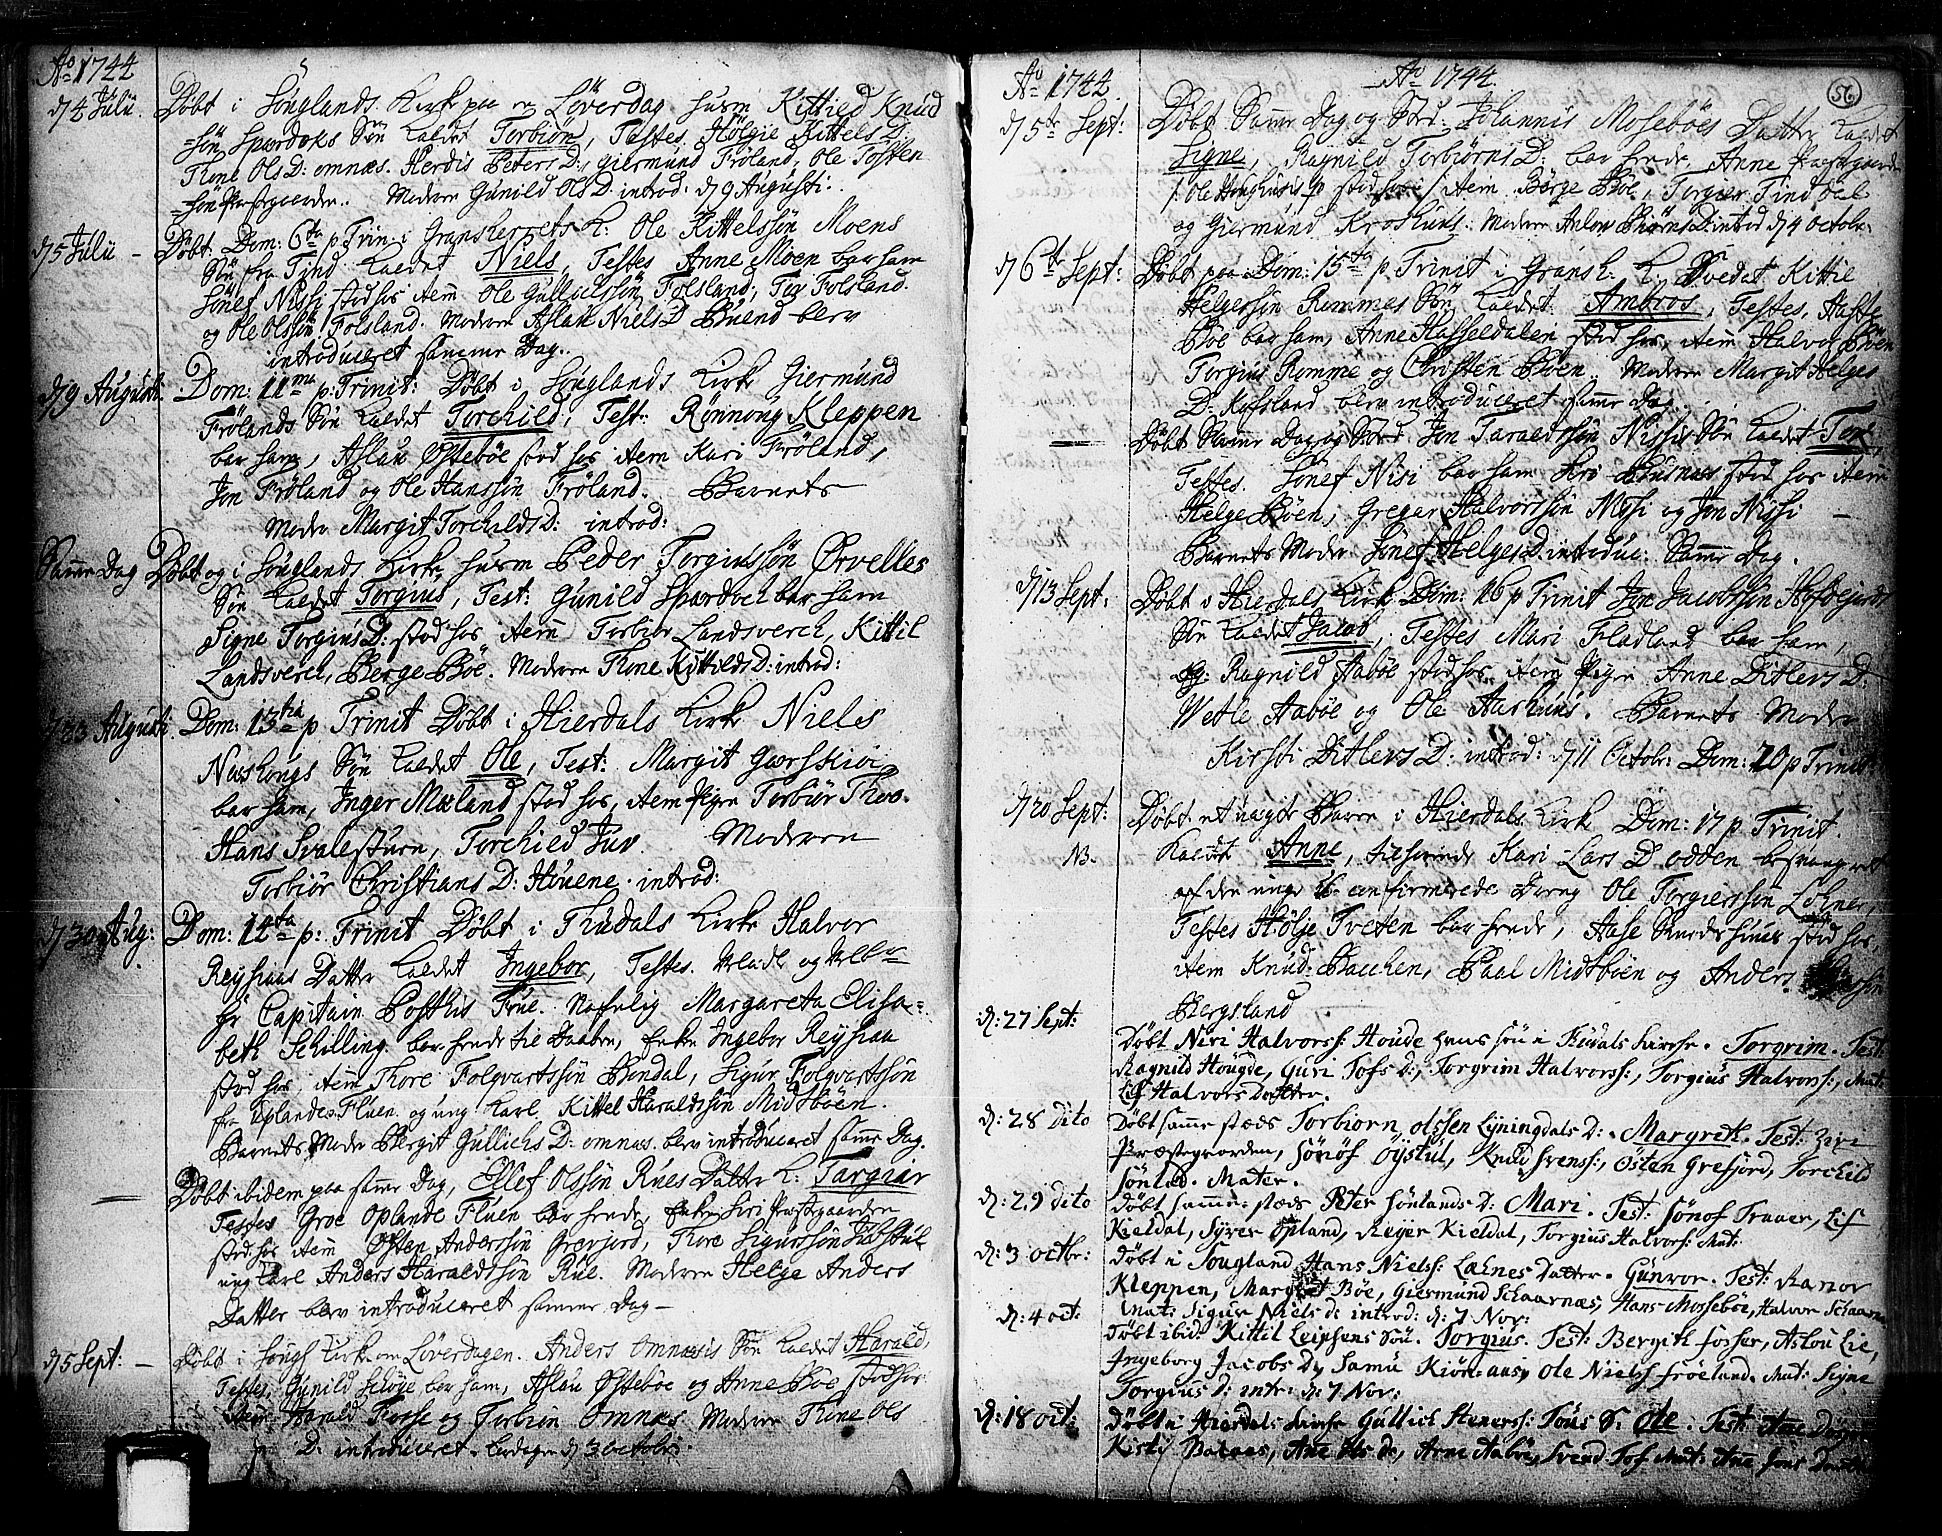 Ao 1744
d 4 Julii. Døbt i Souglands Kirke paa en Løverdag husm Kittild Knud
-sön Spærdoks Sön kaldet Torbiön, Testes, Hölgie Kittels D:
Tone Ols D: omnæs. Herdis Peters D:, Giermund Fröland, Ole Tosten
-sön Præstgaarden. Moderen Gunild Ols D: introd: d 9 Augusti.
d 5 Julii - Døbt Dom: 6ta p. Trin: i Gransherrets K: Ole Kittelssön Moens
Sön fra Tind kaldet Niels, Testes Anne Moen bar ham
Sönef Nissi stod hos item Ole Gullichssön Folsland, Tov Folsland.
og Ole Olssön Folsland. Moderen Aslau Niels D Buend blev
introduceret samme Dag.
d 9 Augusti. Dom: 11ma p: Trinit: Døbt i Souglands Kirke Giermund
Frölands Sön kaldet Torchild, Test: Rönnong Kleppen
bar ham, Aslau Østebøe stod hos item Kari Fröland,
Jon Fröland og Ole Hanssön Fröland. Barnets
Moder Margit Torchilds D: introd:
Samme Dag Døbt og i Souglands Kirke husm Peder Torgiussön Ørvelles
Sön kaldet Torgius, Test: Gunild Spærdoch bar ham
Signe Torgius D: stod hos item Torbiör Landsverch, Kittil
Landsverch, Berge Bøe. Moderen Tone Kittilds D: introd:
d 23 Augusti Dom: 13tia p Trinit Døbt i Hierdals Kirke Niels
Sön kaldet Ole, Test: Margit
bar ham, Inger Mæland stod hos, item Pigen Torbiör
Hans Svalesturn, Torchild Juv. Moderen
Torbiör Christians D: Houene. introd:
d 30 Aug: Dom: 14ta p: Trinit Døbt i Thudals Kirke Halvor
Reysiaas Datter kaldet Ingebor, Testes. og
hr Capitain Posthus Frue. Margareta Elisa-
beth Schilling bar hende til Daaben, Enke Ingebor Reysiaa
stod hos, item Thore Folqvartssön Bondal, Sigur Folqvartssön
fra Oplande Fluen og ung Karl Kittel Haraldssön Midtböen.
Barnets Moder Bergit Gullichs D: omnæs blev introduceret samme Dag.
- Døbt ibidem paa samme Dag, Ellef Olssön Rues Datter k. Targiær
Testes Groe Oplande Fluen bar hende, Enke Siri Præstgaarden
stod hos item Østen Anderssön Grevjord, Thore Sigurssön
ung Karl Anders Haraldssön Rue. Moderen Helge Anders
Datter blev introduceret samme Dag -
d 5 Sept: - Døbt i Sougl: Kirke om Løverdagen. Anders Omnæsis Sön kaldet Harald,
Testes, Gunild bar ham, Aslau Østebøe og Anne Bøe stod hos
item Harald Fosse og Torbiön Omnæs Moderen Tone Ols
D: introduceret Løverdagen d 3 octobr:
Ao 1744 Ao 1744 56
d 5te Sept: Døbt Samme Dag og Sted: Johannis Mosebøes Datter kaldet
Signe, Ragnild Torbiörns D: bar hende, Anne Præstgaarden
/: Ole :/ stod hos / item Börge Bøe, Torgier Tinddal
og Giermund Moderen Aslov Biörns D: introd d 4 octobr:
d 6te Sept: Døbt paa Dom: 15ta p. Trinit i Gransh. K. Kittil
Helgessön Rommes Sön kaldet Ambros, Testes, Haste
Bøe bar ham, Anne Hasseldalen stod hos, item Halvor Bøen
Torgius Romme og Christen Bøen. Moderen Margit Helges
D: Kofsland blev introduceret samme Dag.
- Døbt Samme Dag og Sted Jon Taraldssön Nissis Sön kaldet Tor,
Testes. Sönef Nisi bar ham Siri Busnæs stod hos item
Helge Bøen, Greger Halvorssön Nissi og Jon Nissi -
Barnets Moder Sönef Helges D: introduc: Samme Dag.
d 13 Sept: Døbt i Hierdals Kirke Dom: 16 p Trinit Jon Jacobssön
Sön kaldet Jacob, Testes Mari Fladland bar ham,
og: Ragnild Aabøe stod hos. item Pigen Anne Ditlevs D
Wetle Aabøe og Ole Aarhuus. Barnets Moder
Kirsti Ditlevs D: introd: d 11 Octobr: Dom: 20 p Trinit
d 20 Sept: Døbt et uægte Barn i Hierdals Kirke Dom: 17 p Trinit.
NB. kaldet Anne, tilhørende Kari Lars D odden besvangret
af den unge confirmerede Dreng Ole Torgierssön
Testes Hölje Tveten bar hende, Aase stod hos,
item Knud Bacchen, Paal Midtböen og Anders
Bergsland
d: 27 Sept: Døbt Niri Halvors: Houde hans sön i Tudals kirche. Torgrim. Test:
Ragnild Hougde, Guri Tofs D:, Torgrim Halvors:, Torgius Halvors:, Mat:
Lif Halvors Datter.
d: 28 dito Døbt samme stæds Torbiorn olssen Lyningdals D: Margreth. Test:
Præstegaarden, Sönöf Öystul, Knud Svens:, Östen Grefjord, Torchild
Sönled. Mater.
d: 29 dito Døbt samme stæds Peter Sönlands D: Mari. Test: Sönof Traaer, Lif
Kieldal, Syver Opland, Reiger Kieldal, Torgius Halvors: Mat:
d: 3 octbr: Døbt i Sougland Hans Niels: Lahnes Datter. Gunvor. Test: Ranor
Kleppen, Margret Böe, Giermund Schaarnæs, Hans Mossebøe, Halvor Schaarn
Mat: Sigur Niels d: introd: d: 7 Nov:
d: 4 oct: Døbt ibid: Kittil Leifsens Sön. Torgius. Test: Bergith fosser, Aslou Lie,
Ingeborg Jacobs D, Samu Ole Niels fröeland. Mat: Signe
Torgius d: intr: d: 7 Nov:
d: 18 oct: Døbt i Hierdals kirche Gullich Steners: Tous S: Ole. Test:
Kisty Bakaas, Ane Ols D:, Arne Aabøe, Svend Tof. Mat: Ane Jons Datter